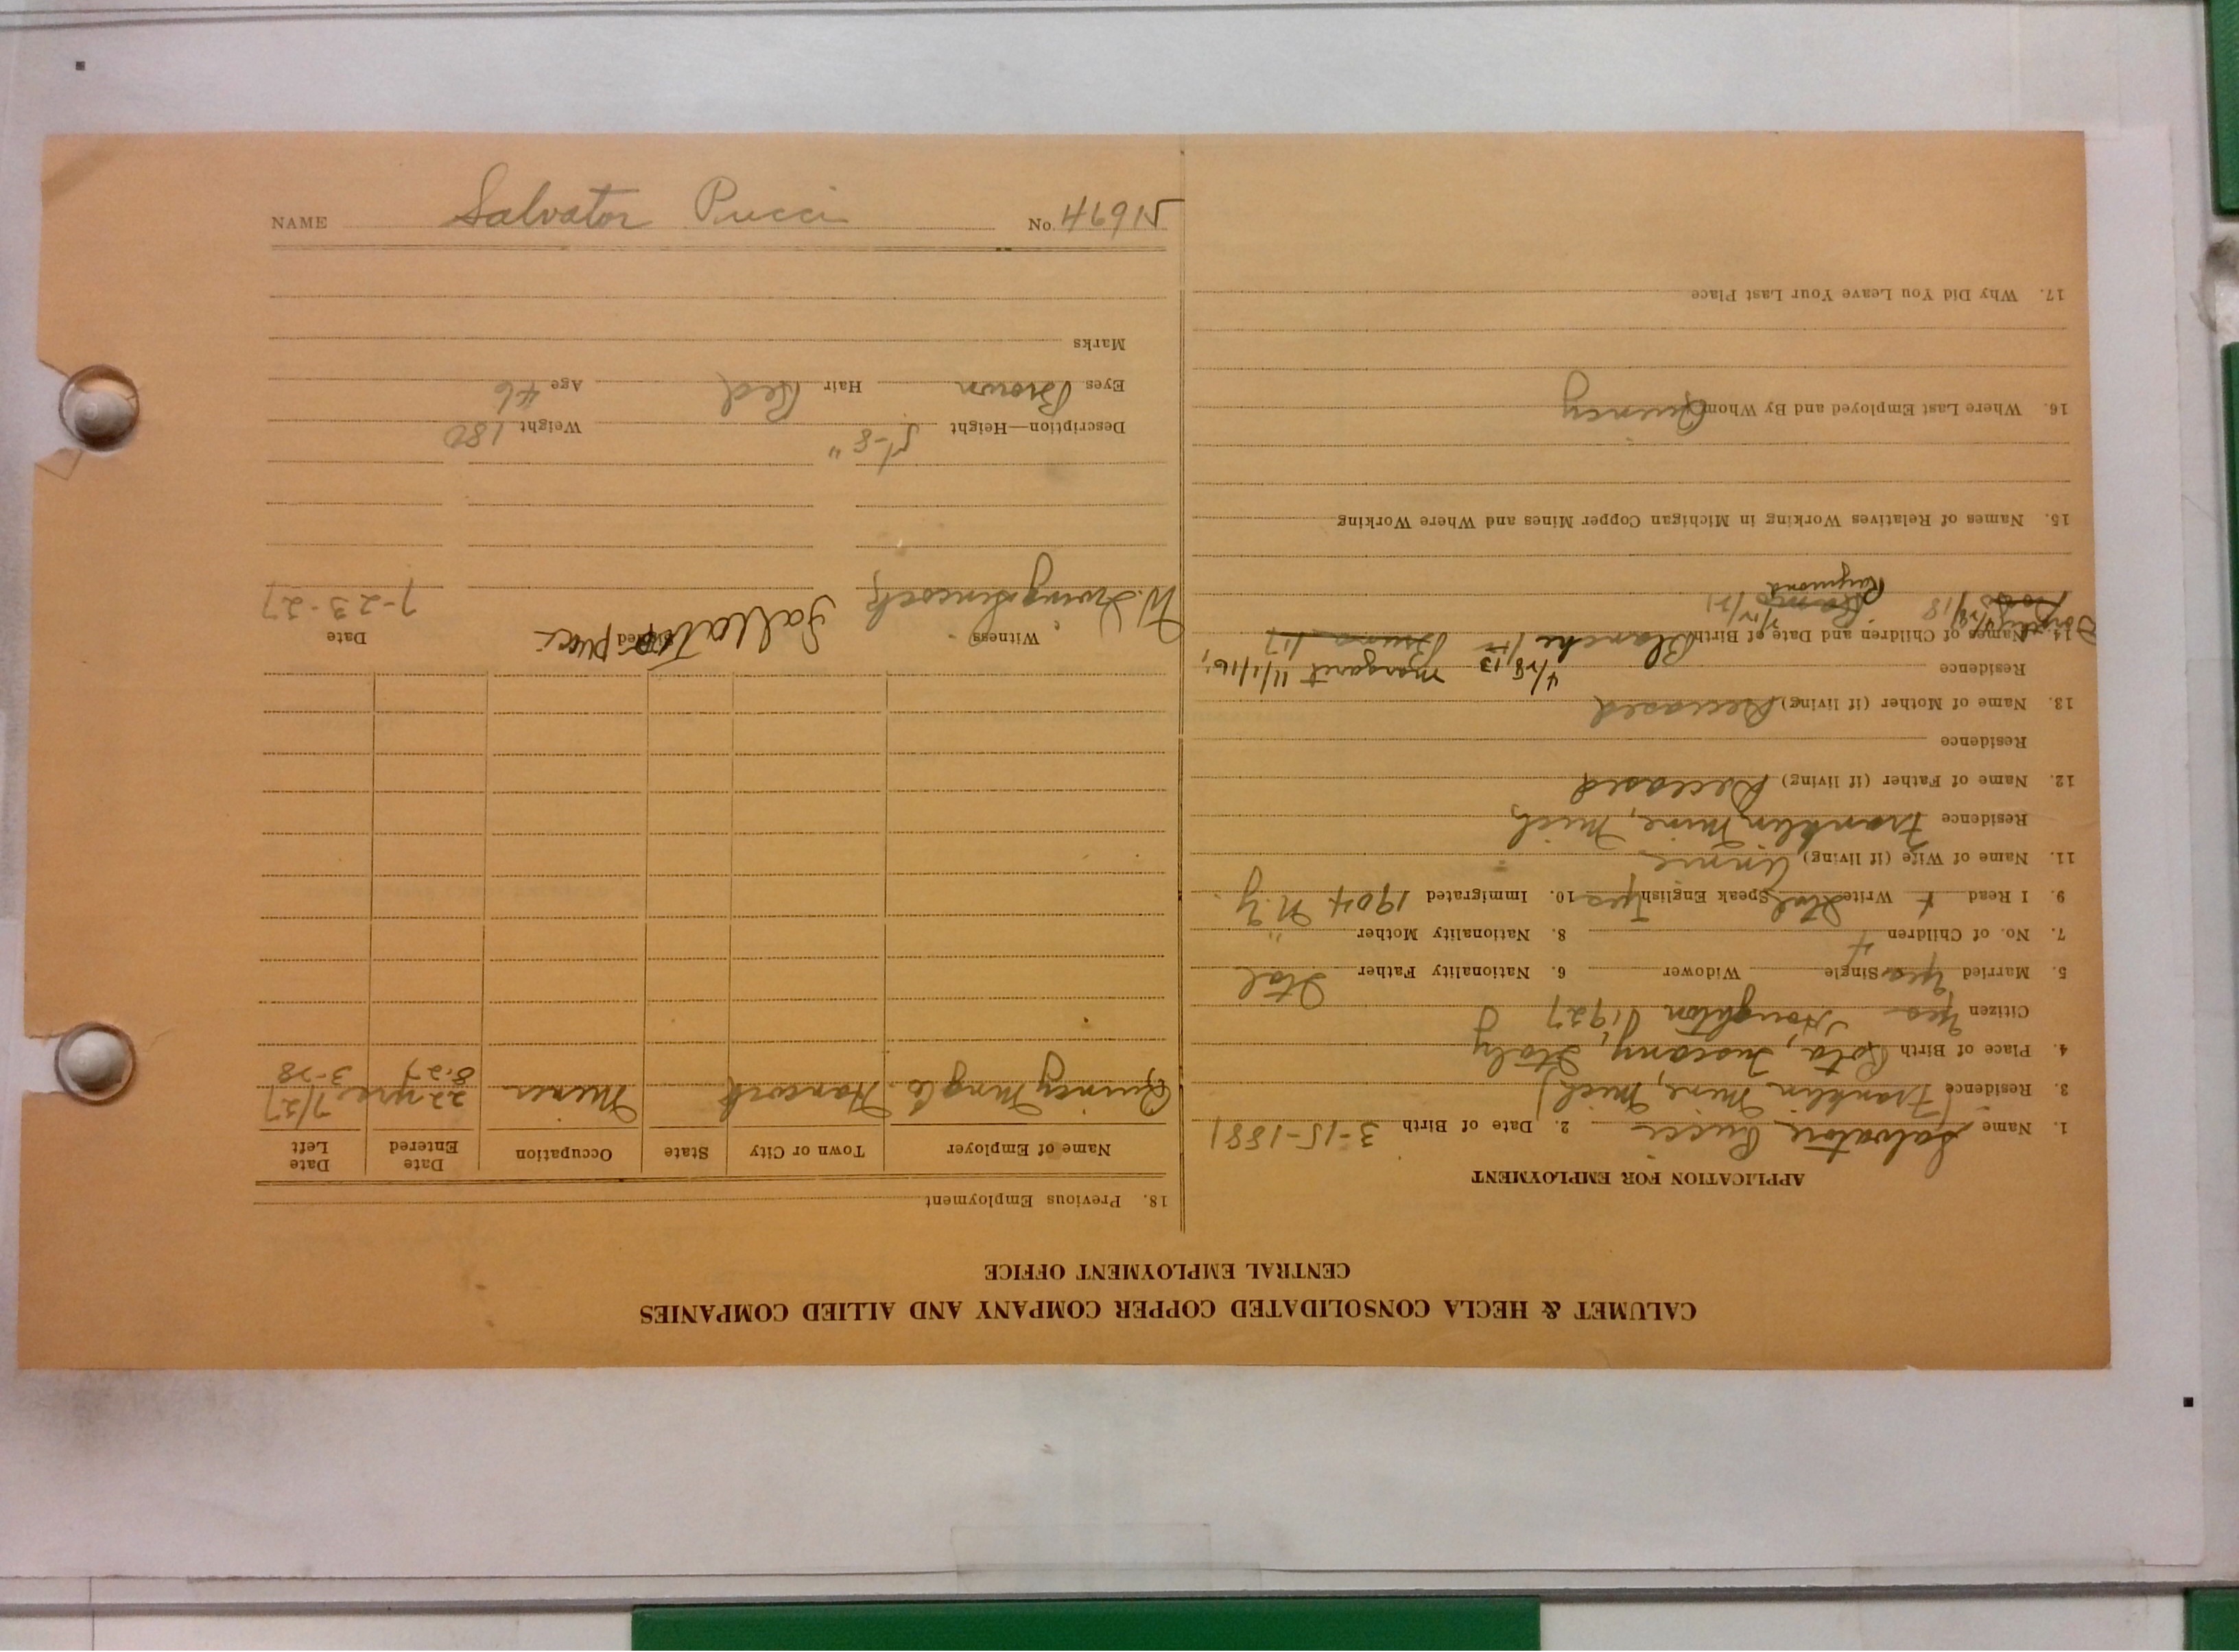 NAME Salvator Pucci No. 46915
CALUMET & HECLA CONSOLIDATED COPPER COMPANY AND ALLIED COMPANIES
CENTRAL EMPLOYMENT OFFICE
APPLICATION FOR EMPLOYMENT
1. Name Salvatore Pucci 2. Date of Birth 3-15-1881
3. Residence Franklin Mine, Mich
4. Place of Birth Rota, Tuscany, Italy
Citizen yes Houghton 1927
5. Married yes Single Widower 6. Nationality Father Ital
7. No. of Children 4 8. Nationality Mother "
9. I Read + Write Ital Speak English yes 10. Immigrated 1904 N.Y.
11. Name of Wife (if living) Annie
Residence Franklin Mine, Mich
12. Name of Father (if living) Deceased
Residence
13. Name of Mother (if living) Deceased
Residence 4/28/13 Margaret 11/1/16;
14. Names of Children and Date of Birth Blanche
Raymond
15. Names of Relatives Working in Michigan Copper Mines and Where Working
16. Where Last Employed and By Whom Quincy
17. Why Did You Leave Your Last Place
18. Previous Employment
Name of Employer Town or City State Occupation Date Entered Date Left
Quincy Mng Co. Hancock Miner 22 yrs 7/27
8-27 3-28
Witness Signed Date
7-23-27
Description—Height 5'-8" Weight 180
Eyes Brown Hair Red Age 46
Marks